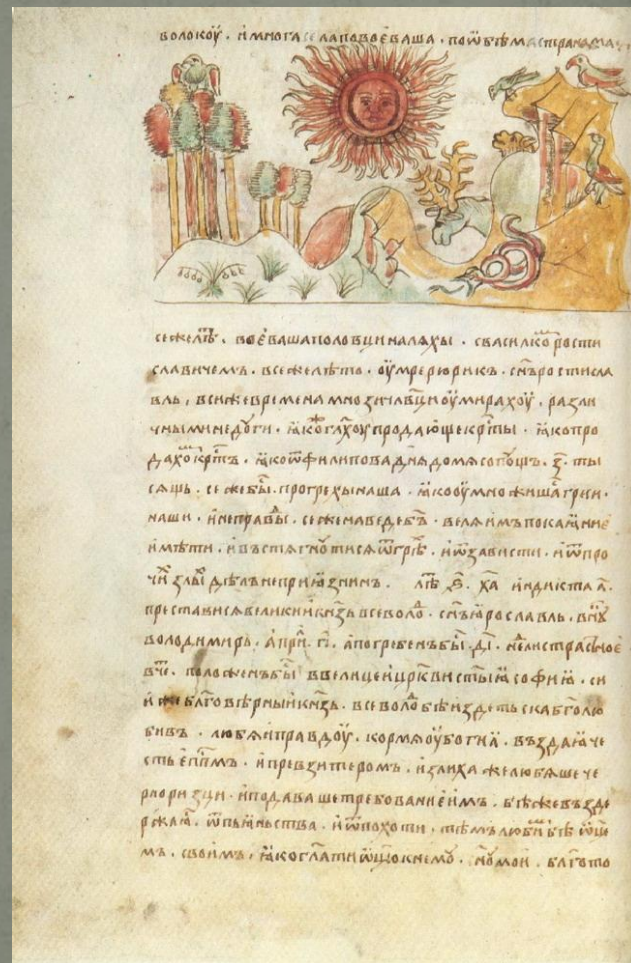 волокоу · и многа села повоеваша · по ѿбѣма странама
се же лѣⷮ · воеваша половци на ляхы · с василкоⷨ рости
славичемъ · в се же лѣто · оумре рюрикъ · сн҃ъ ростисла
вль, в си же времена мнози члв҃ци оумираху · разли
чными недуги · ꙗкоⷤ гл҃хоу продающе крⷭты · ꙗко про
дахоⷨ крⷭтъ · ꙗко ѿ филипова дня до мясопощъ · з҃ · ты
сящь · се же быⷭ · про грехы наша · ꙗко оумножишаⷭ греси ·
наши · и неправⷣы · се же наведе бг҃ъ · веля имъ покаꙗние
имѣти · и въстягнутися ѿ грѣⷯ · и ѿ зависти · и ѿ про
чиⷯ злыⷯ дѣлъ неприꙗзнинъ · лѣⷮ ҂ѕ҃ · х҃а индикта а҃ ·
преставися великий кнⷥь всеволоⷣ · сн҃ъ ꙗрославль · внуⷦ
володимирь · априⷧ · г҃і · а погребенъ быⷭ · д҃і · неⷧи страсное
вче · положенъ быⷭ в велицеи цр҃кви ст҃ыꙗ софиꙗ · си
и же блг҃овѣрныи кнⷥь · всеволоⷣ бѣ издетьска бг҃олю
бивъ · любя правдоу · кормя оубогиꙗ · въздаꙗ че
сть еппⷭмъ · и превзитером · излиха же любяше че
рноризци · и подаваше требование им · бѣ же въздe
ржаꙗⷭ · ѿ пьꙗньства · и ѿ похоти · тѣмъ любиⷨ бѣ ѿц҃е
мъ · своим · ꙗко гл҃ати ѿц҃ю к нему · сн҃у мои · благо то